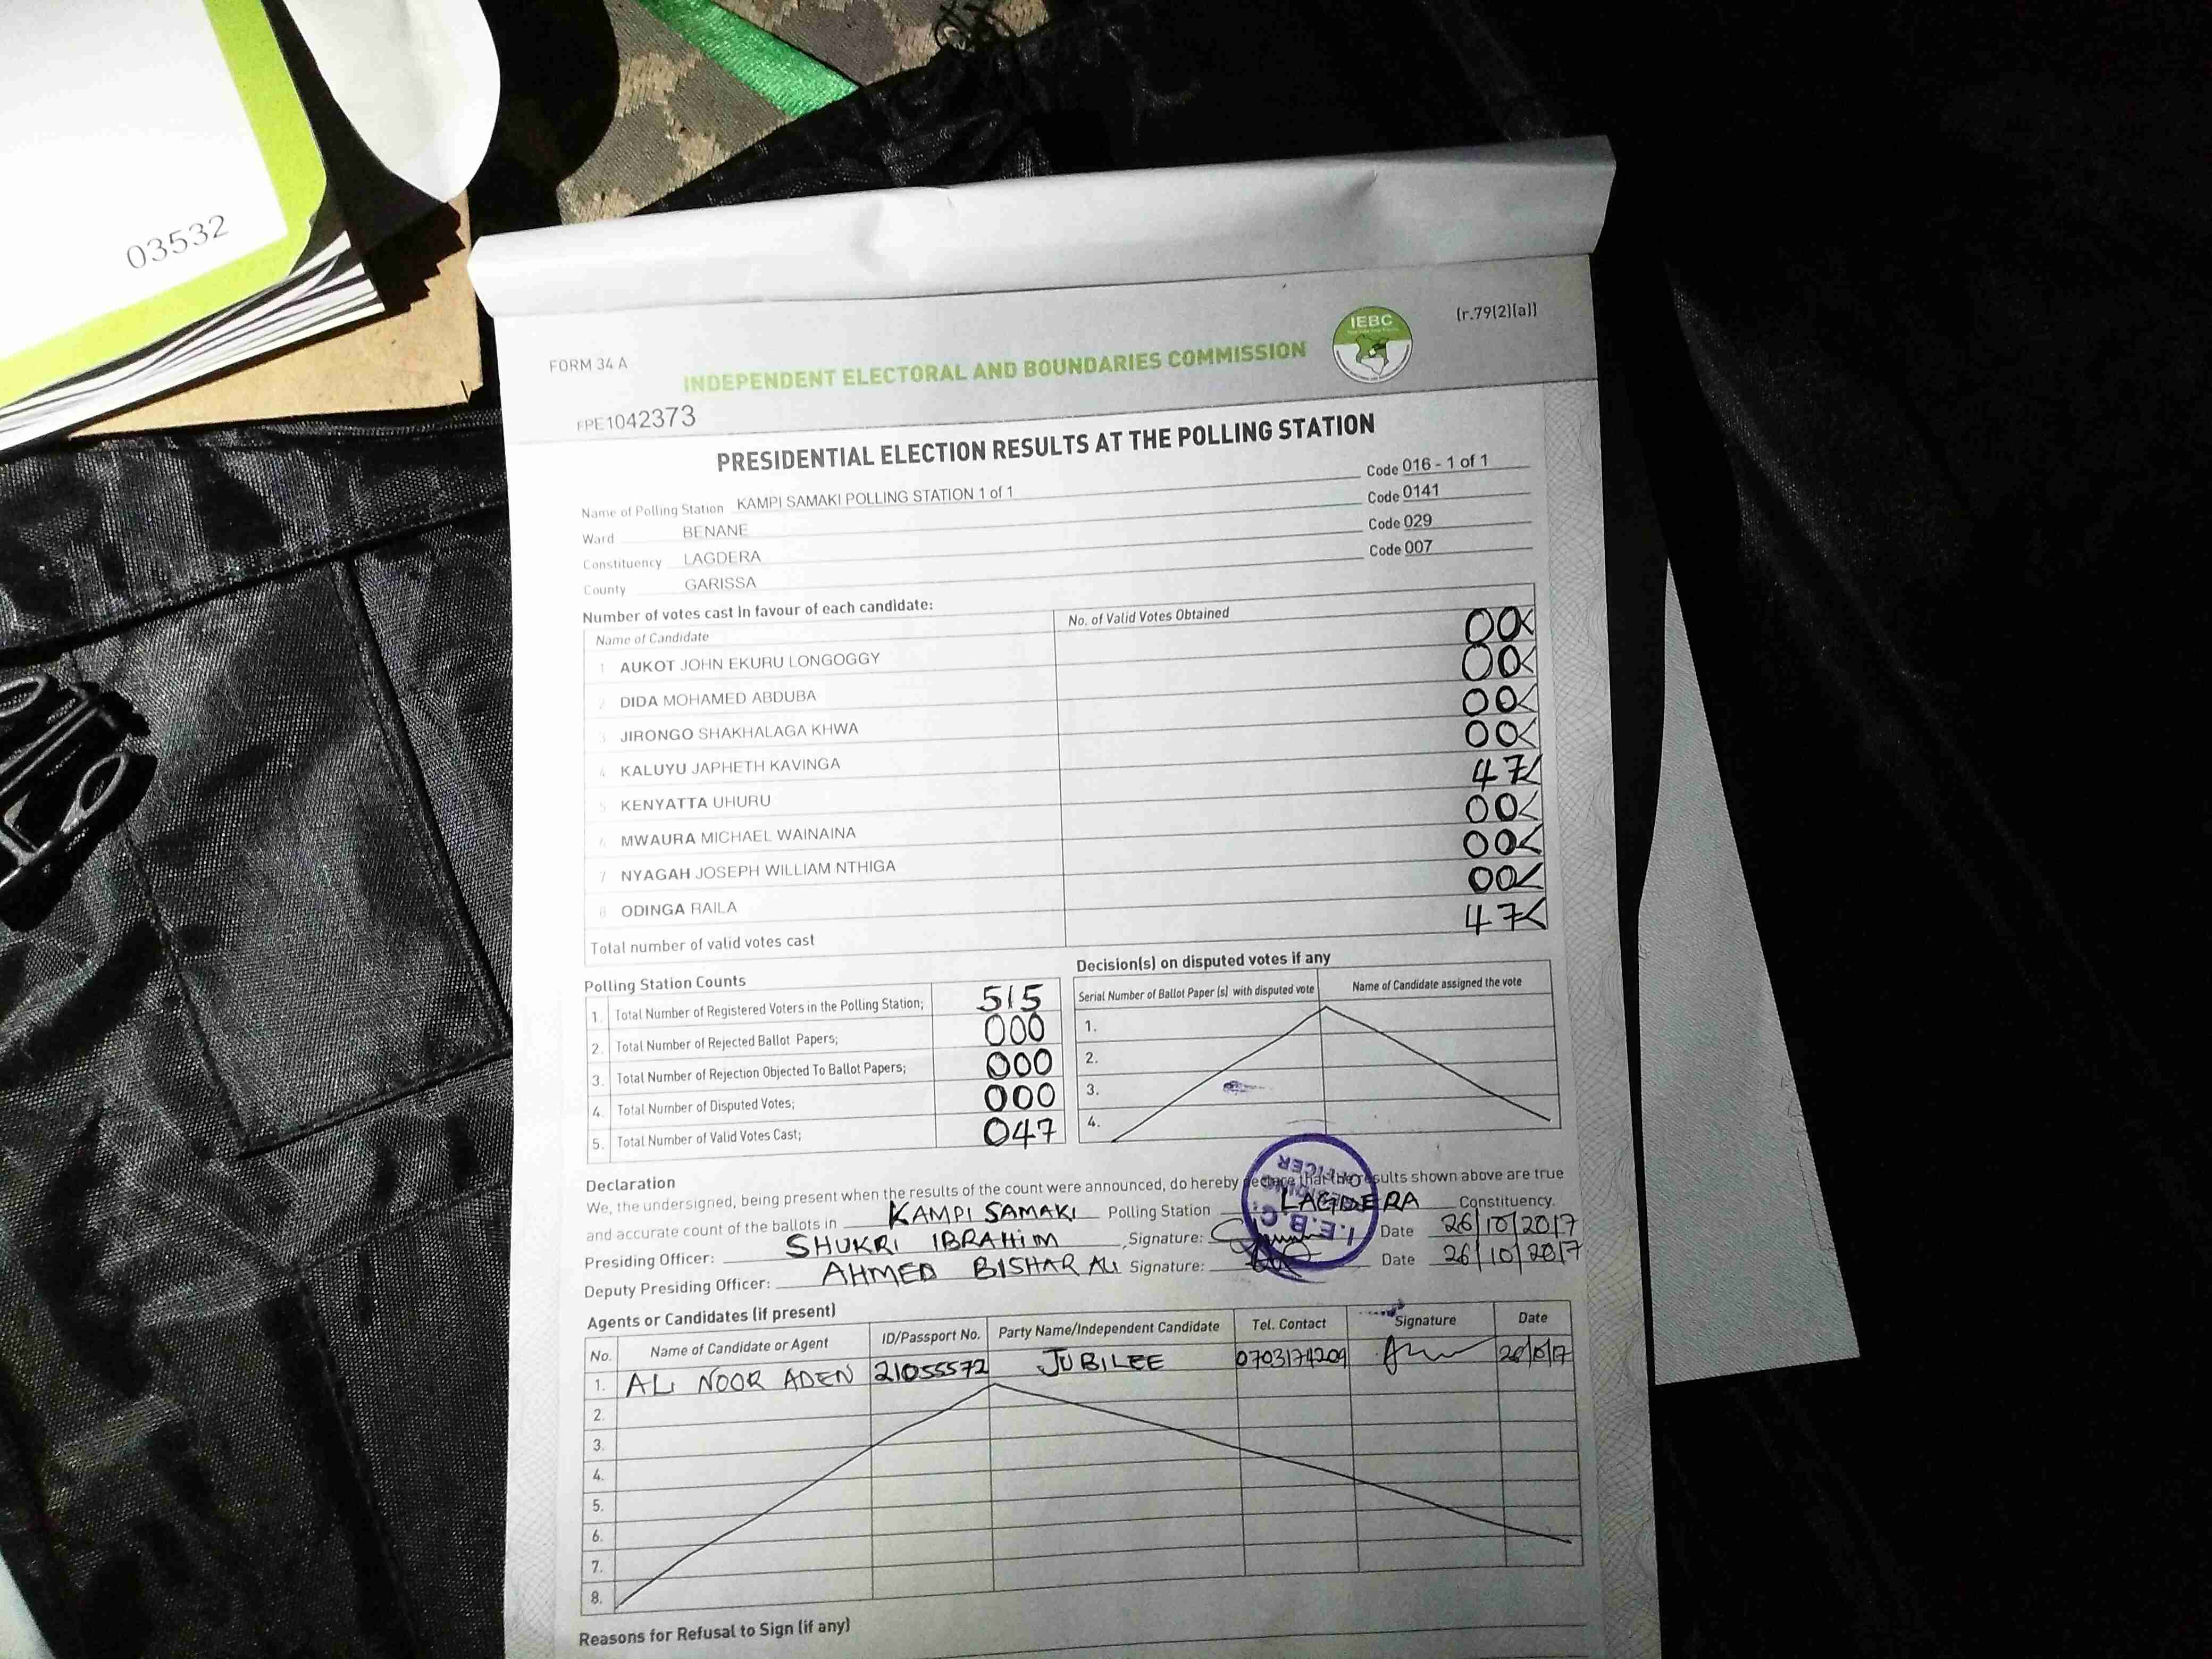 03532
FORM 34 A
INDEPENDENT ELECTORAL AND BOUNDARIES COMMISSION
IEBC
(r.79(2)(a))
FPE1042373
PRESIDENTIAL ELECTION RESULTS AT THE POLLING STATION
Name of Polling Station KAMPI SAMAKI POLLING STATION 1 of 1 Code 016 - 1 of 1
Ward BENANE Code 0141
Constituency LAGDERA Code 029
County GARISSA Code 007
Number of votes cast in favour of each candidate:
Name of Candidate No. of Valid Votes Obtained
1 AUKOT JOHN EKURU LONGOGGY 00
2 DIDA MOHAMED ABDUBA 00
3 JIRONGO SHAKHALAGA KHWA 00
4 KALUYU JAPHETH KAVINGA 00
5 KENYATTA UHURU 47
6 MWAURA MICHAEL WAINAINA 00
7 NYAGAH JOSEPH WILLIAM NTHIGA 00
8 ODINGA RAILA 00
Total number of valid votes cast 47
Polling Station Counts
1. Total Number of Registered Voters in the Polling Station; 515
2. Total Number of Rejected Ballot Papers; 000
3. Total Number of Rejection Objected To Ballot Papers; 000
4. Total Number of Disputed Votes; 000
5. Total Number of Valid Votes Cast; 047
Decision(s) on disputed votes if any
Serial Number of Ballot Paper (s) with disputed vote Name of Candidate assigned the vote
1.
2.
3.
4.
Declaration
We, the undersigned, being present when the results of the count were announced, do hereby declare that the results shown above are true
and accurate count of the ballots in KAMPI SAMAKI Polling Station LAGDERA Constituency.
Presiding Officer: SHUKRI IBRAHIM Signature: Date 26/10/2017
Deputy Presiding Officer: AHMED BISHAR ALI Signature: Date 26/10/2017
I.E.B.C. OFFICER
Agents or Candidates (if present)
No. Name of Candidate or Agent ID/Passport No. Party Name/Independent Candidate Tel. Contact Signature Date
1. ALI NOOR ADEN 21055572 JUBILEE 0703174209
2.
3.
4.
5.
6.
7.
8.
Reasons for Refusal to Sign (if any)